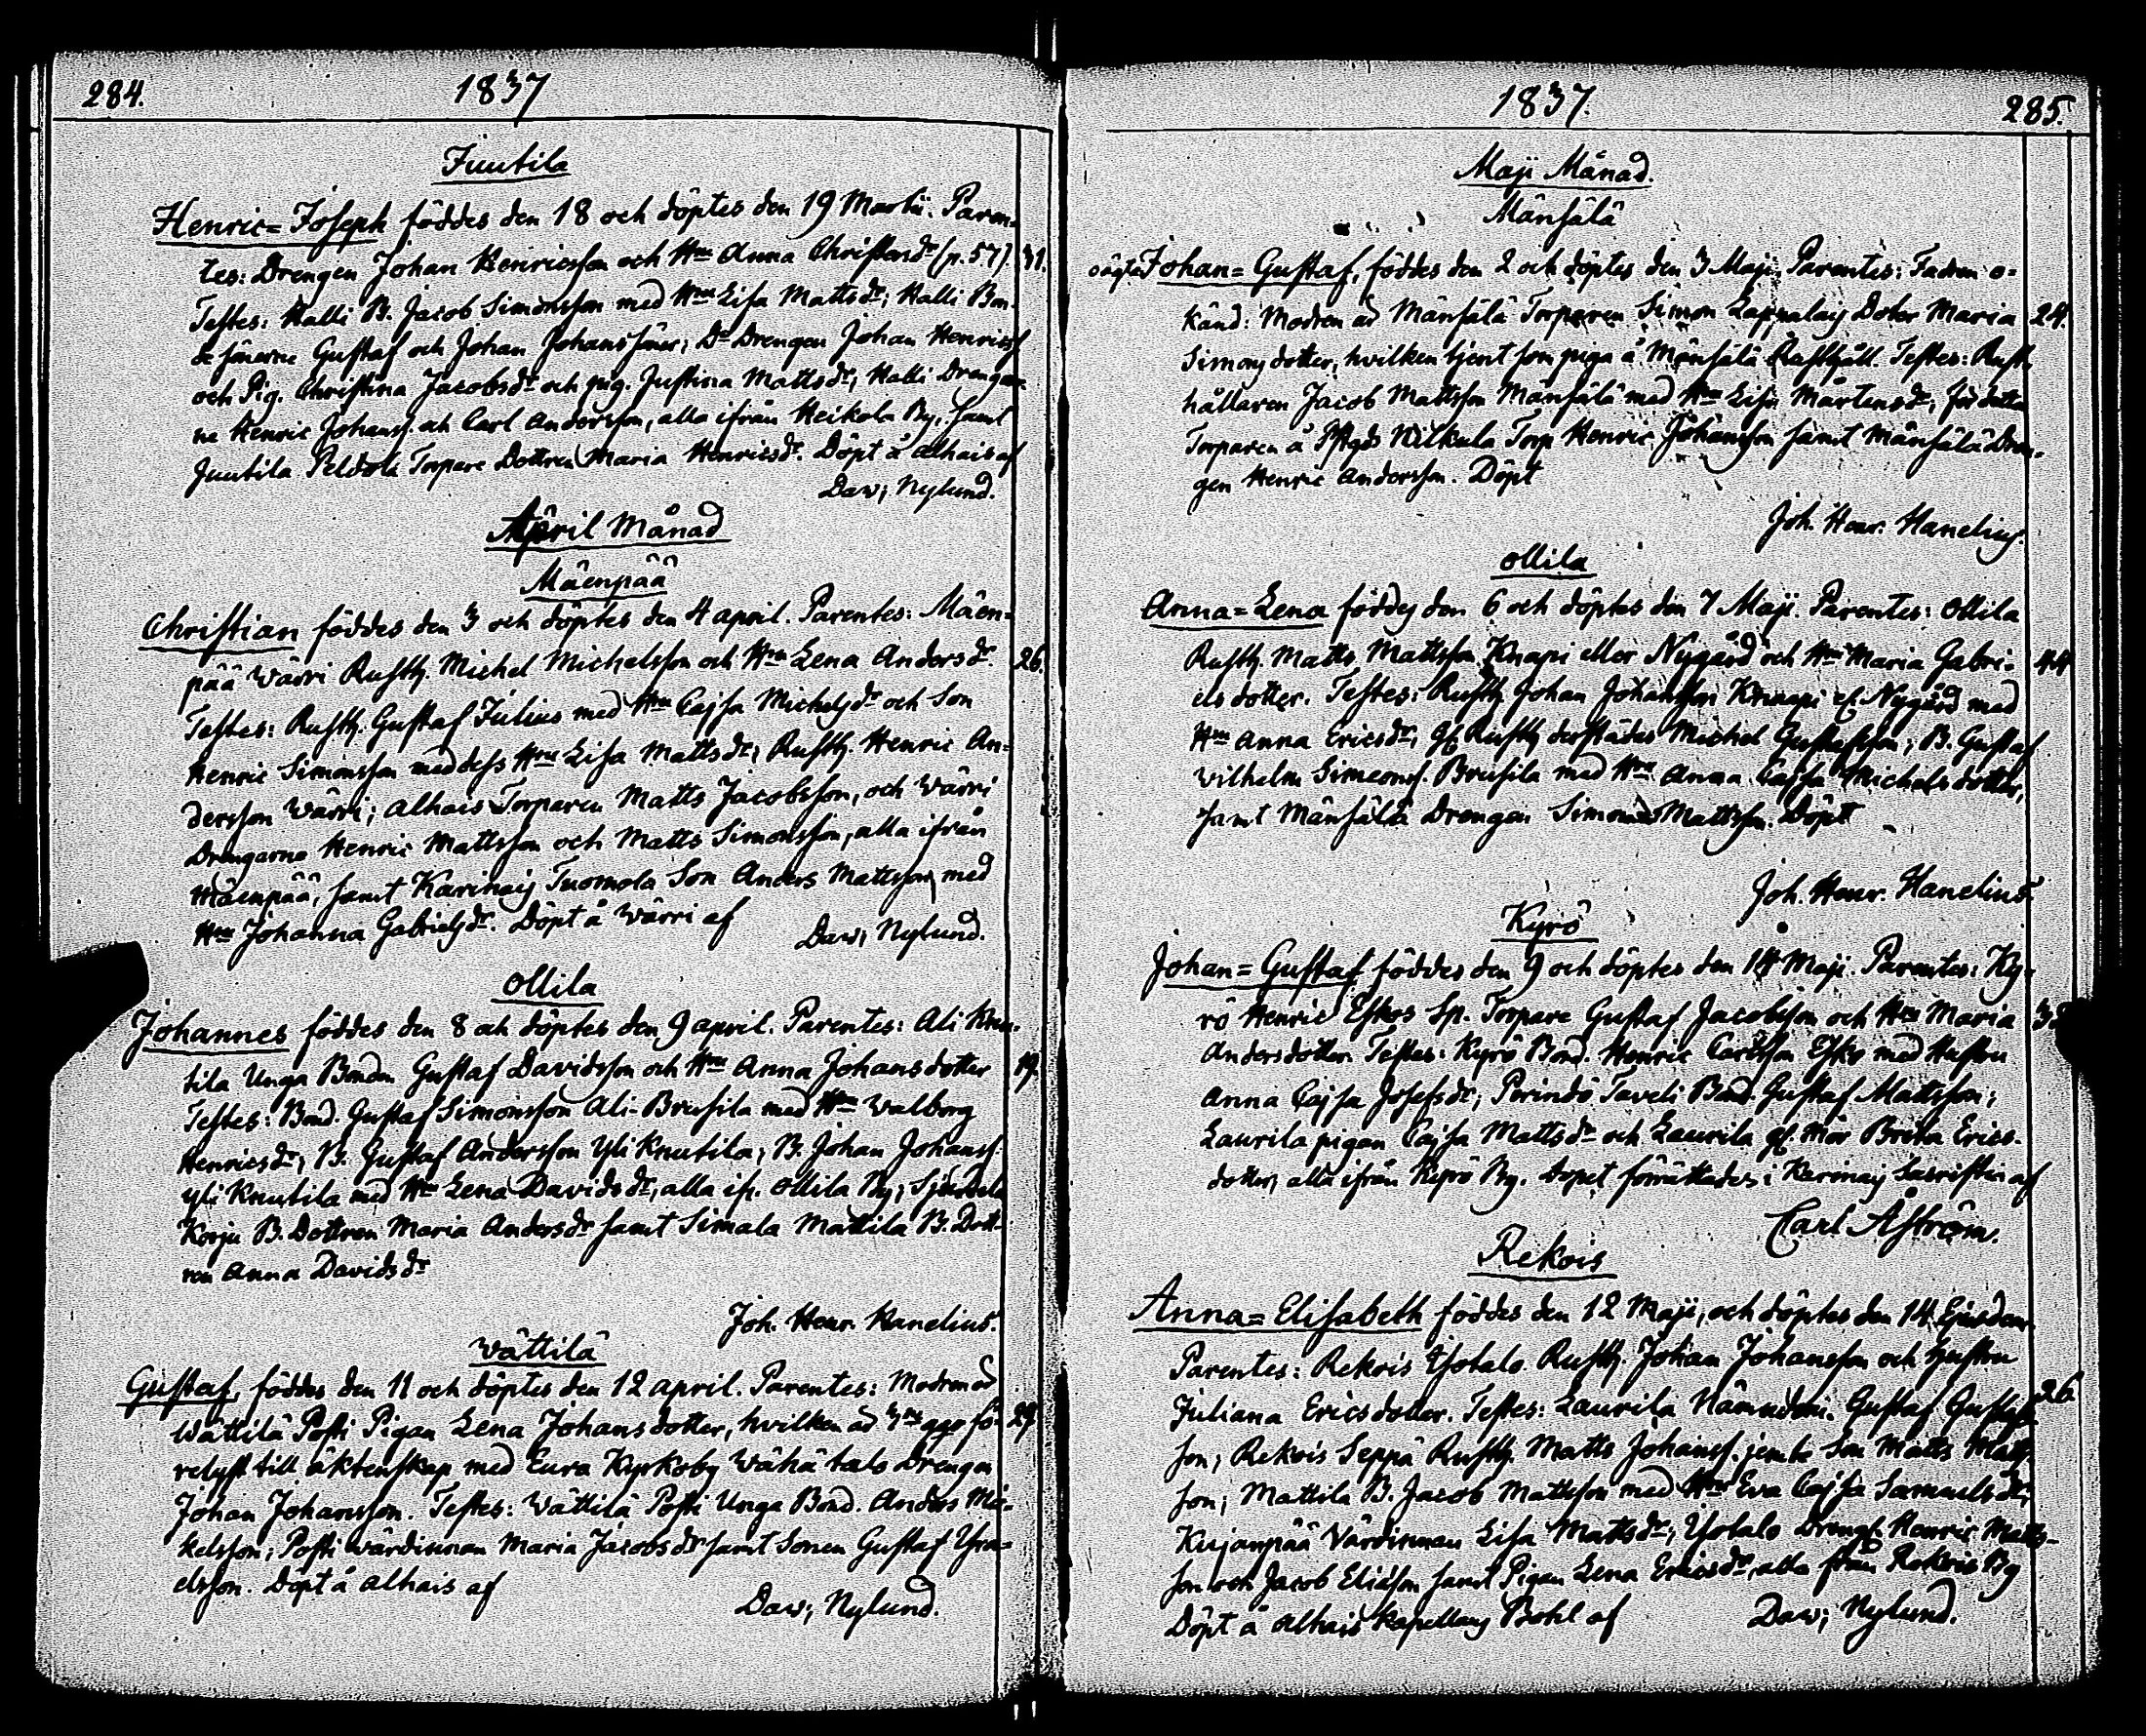 284.
1837
Juutila
Henric= Joseph föddes den 18 och döptes den 19 Martii. Paren-
tes: Drengen Johan Henricsson och Hru Anna Christiansdr (p. 57). 31.
Testes: Kalli B. Jacob Simonsson med Hru Lisa Mattsdr; Kalli Bon-
de sönerne Gustaf och Johan Johans söner; Do Drengen Johan Henricss
och Pig. Christina Jacobsdr och pig. Justina Mattsdr; Kalli Drengar-
ne Henric Johanss. och Carl Andersson, alla ifrån Heikola By, samt
Juutila Peldola Torpare Dottren Maria Henricsdr. Döpt å alhais af
Dav; Nylund.
April Månad
Mäenpää
Christian föddes den 3 och döptes den 4 april. Parentes: Mäen-
pää Wärri Rusth. Michel Michelsson och Hru Lena Andersdr. 26.
Testes: Rusth. Gustaf Julius med Hru Cajsa Michelsdr och Son
Henric Simonsson med dess Hru Lisa Mattsdr; Rusth. Henric An-
dersson Wärri; alhais Torparen Matts Jacobsson, och Wärri
Drengarne Henric Mattsson och Matts Simonsson, alla ifrån
Mäenpää, samt Karinais Tuomola Son Anders Mattsson med
Hru Johanna Gabrielsdr. Döpt å Wärri af
Dav; Nylund.
Ollila
Johannes föddes den 8 och döptes den 9 april. Parentes: Ali Knu-
tila Unga Bonden Gustaf Davidsson och Hru Anna Johansdotter 19.
Testes: Bond. Gustaf Simonsson Ali-Brusila med Hru Walborg
Henricsdr; B. Gustaf Andersson Yli Knutila; B. Johan Johanss.
Yli Knutila med Hru Lena Davidsdr, alla ifr. Ollila By;
Korju B. Dottren Maria Andersdr samt Simala Mattila B. Dott-
ren Anna Davidsdr
Joh. Henr. Hanelius.
Wättilä
Gustaf, föddes den 11 och döptes den 12 april. Parentes: Modren är
Wättilä Posti Pigan Lena Johansdotter, hvilken är 3ne ggr fö- 29.
relyst till äktenskap med Eura Kyrkoby Wähä talo Drengen
Johan Johansson. Testes: Wättilä Posti Unga Bond. Anders Mi-
kelsson; Posti Wärdinnan Maria Jacobsdr samt Sonen Gustaf Isra-
elsson. Döpt å alhais af
Dav; Nylund.
1837.
285.
Maji Månad.
Mänsälä
oägta Johan= Gustaf, föddes den 2 och döptes den 3 Maji. Parentes: Fadren o-
känd: Modren är Mänsälä Torparen Simon Lappalais Dotter Maria 24.
Simonsdotter, hvilken tjent som piga å Mänsälä Rusthåll. Testes: Rust-
hållaren Jacob Mattsson Mänsälä med Hru Lisa Mårtensdr, för detta
Torparen å Kilkula Torp Henric Johansson samt Mänsälä Dren-
gen Henric Andersson. Döpt
Joh. Henr. Hanelius.
Ollila
Anna= Lena föddes den 6 och döptes den 7 Maji. Parentes: Ollila
Rusth. Matts Mattsson Knapi eller Nygård och Hru Maria Gabri- 44
elsdotter. Testes: Rusth. Johan Johansson Knaapi el. Nygård med
Hru Anna Ericsdr; Gl. Rusth. derstädes Michel Gustafsson; B. Gustaf
Wilhelm Simeonss. Brusila med Hru Anna Cajsa Michelsdotter,
samt Mänsälä Drengen Simon Mattsson. Döpt
Joh. Henr. Hanelius.
Kyrö
Johan= Gustaf föddes den 9 och döptes den 14 Maji. Parentes: Ky-
rö Henric Eskos Sp. Torpare Gustaf Jacobsson och Hru Maria
Andersdotter. Testes: Kyrö Bond. Henric Carlsson Esko med Hustru
Anna Cajsa Josefsdr; Perindö Taveli Bond. Gustaf Mattsson;
Laurila pigan Cajsa Mattsdr och Laurila gl. Mor Brita Erics-
dotter, alla ifrån Kyrö By. Dopet förrättades i Karinais Sacristia af
Carl Åström.
Rekois
Anna= Elisabeth föddes den 12 Maji, och döptes den 14 Ejusdem
Parentes: Rekois Isotalo Rusth. Johan Johansson och Hustru
Juliana Ericsdotter. Testes: Laurila Nämndem. Gustaf Gustafs- 26
son; Rekois Seppä Rusth. Matts Johanss. jemte Son Matts Matts-
son; Mattila B. Jacob Mattsson med Hru Eva Cajsa Samuelsdr;
Kujanpää Värdinnan Lisa Mattsdr; Isotalo Drengf. Henric Matts-
son och Jacob Eliasson samt Pigan Lena Ericsdr, alla från Rekois By
Döpt å Alhais Kapellans Bohl af
Dav; Nylund.